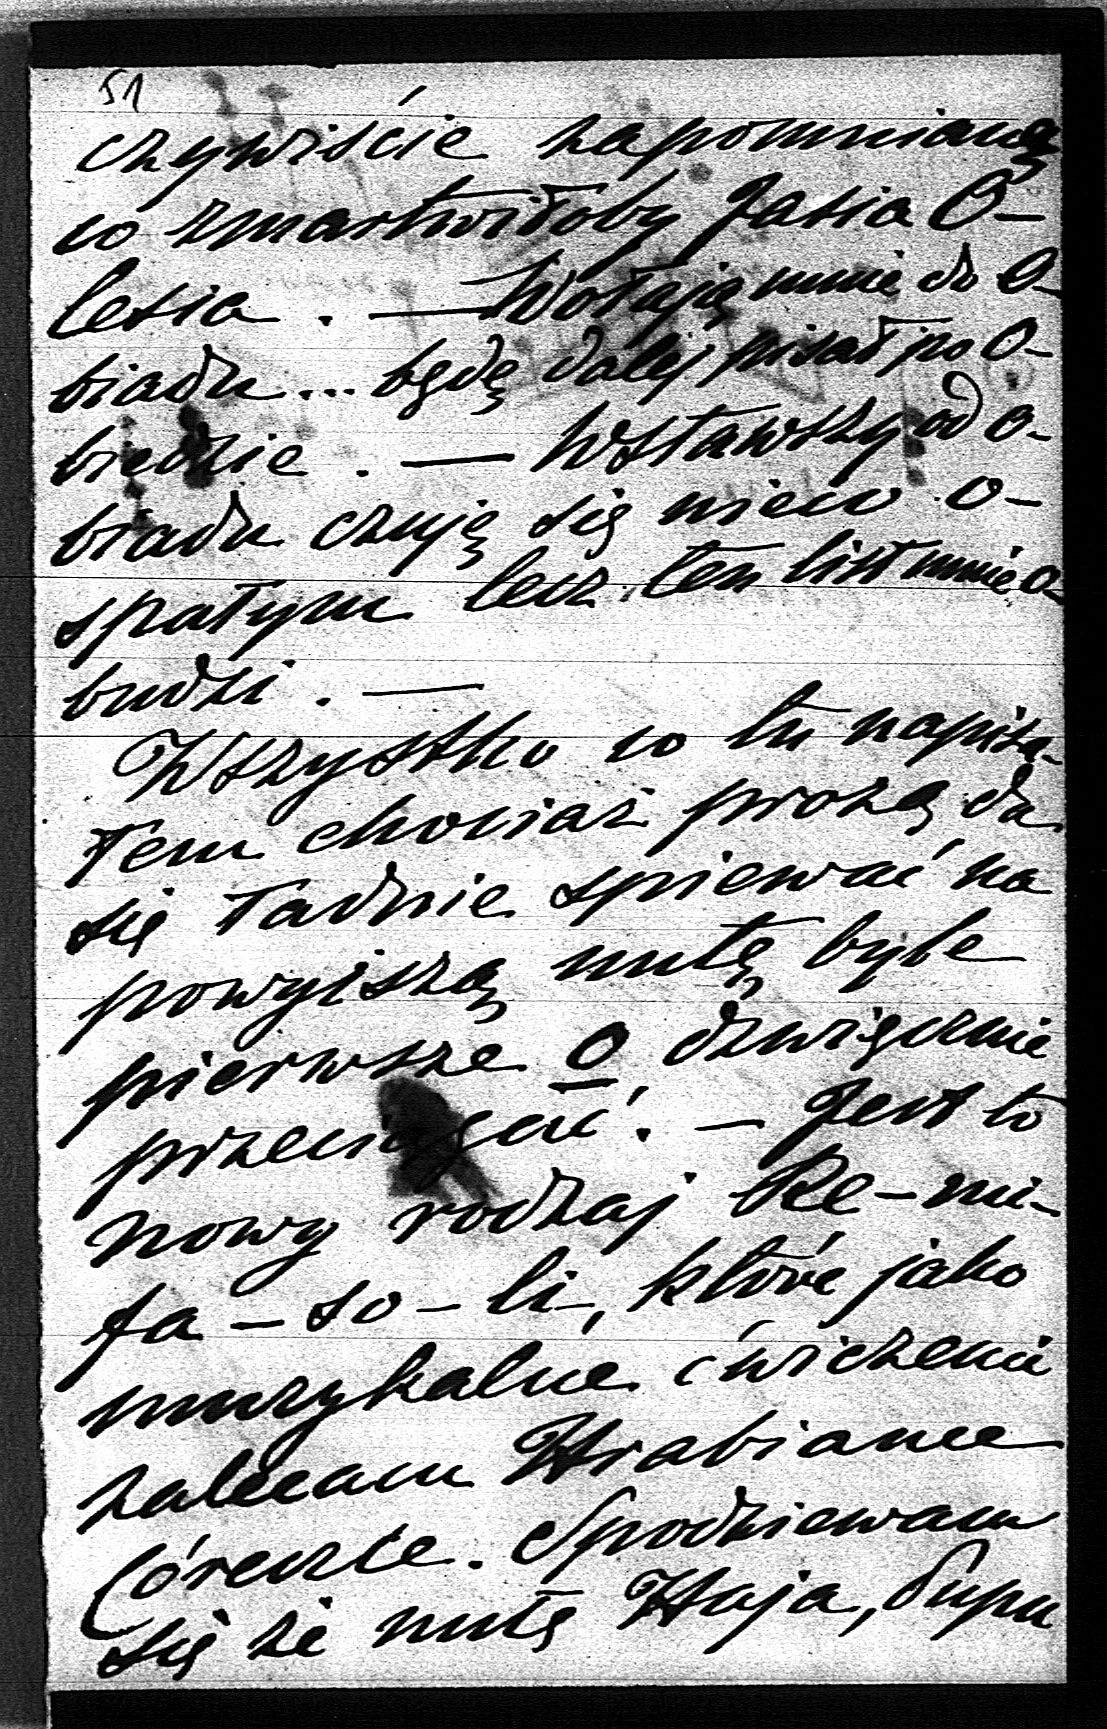 51
czywiście zapomnianą
co zmartwiłoby Jasia O-
lesia. — Wołają mnie do O-
biadu... będę dalej pisał po O-
biedzie. — Wstawszy od o-
biadu czuję się nieco o-
spałym lecz ten list mnie o-
budzi. —
Wszystko co tu napisa-
łem chociaż prozą da
się ładnie spiewać na
powyiszą nutę byle
pierwsze O dzwięcznie
przeciągać. — Jest to
nowy rodzaj Re-mi-
fa-so-li, które jako
muzykalne ćwiczenie
zalecam Hrabiance
Córeczce. Spodziewam
się że nutę Haja, Pupu